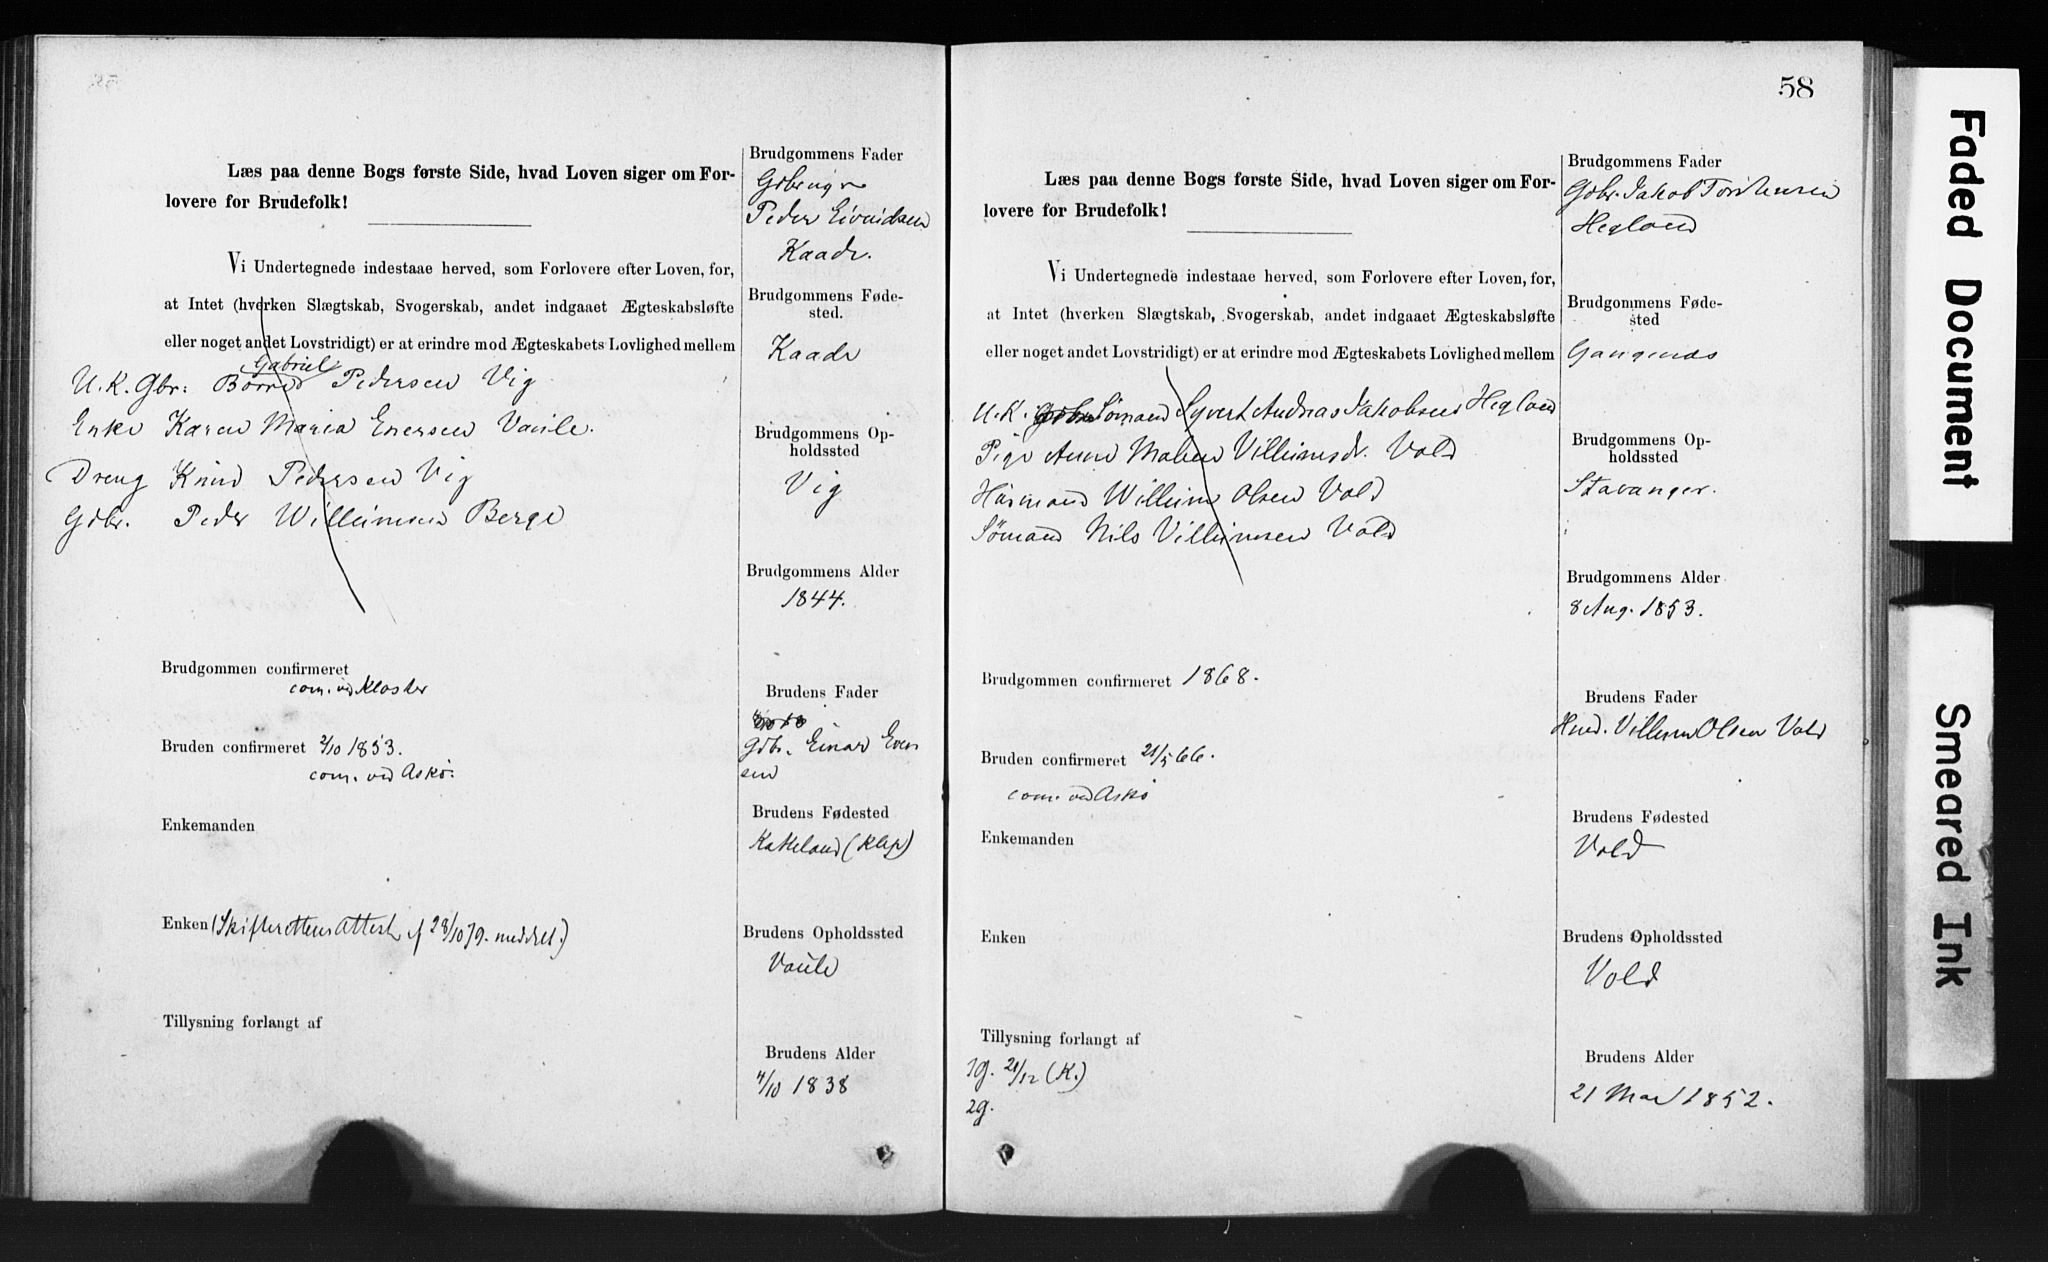 Læs paa denne Bogs første Side, hvad Loven siger om For-
lovere for Brudefolk!
Vi Undertegnede indestaae herved, som Forlovere efter Loven, for,
at Intet (hverken Slægtskab, Svogerskab, andet indgaaet Ægteskabsløfte
eller noget andet Lovstridigt) er at erindre mod Ægteskabets Lovlighed mellem
Gabriel
U. K. Gbr: Pedersen Vig
Enke Karen Maria Enersen Vaule.
Dreng Knud Pedersen Vig
Gdbr. Peder Willumsen Berge
Brudgommen confirmeret
com. ved Kloster
Bruden confirmeret 2/10 1853.
com. ved Askø.
Enkemanden
Enken (Skifterettens Attest af 28/10 79. meddelt.)
Tillysning forlangt af
Brudgommens Fader
Peder Eivindsen
Kaade.
Brudgommens Føde-
sted.
Kaade
Brudgommens Op-
holdssted
Vig
Brudgommens Alder
1844.
Brudens Fader
Gdbr. Einar Even
sen
Brudens Fødested
(Klep)
Brudens Opholdssted
Vaule
Brudens Alder
4/10 1838
58
Læs paa denne Bogs første Side, hvad Loven siger om For-
lovere for Brudefolk!
Vi Undertegnede indestaae herved, som Forlovere efter Loven, for,
at Intet (hverken Slægtskab, Svogerskab, andet indgaaet Ægteskabsløfte
eller noget andet Lovstridigt) er at erindre mod Ægteskabets Lovlighed mellem
U. K. Sømand Syvert Andreas Jakobsen Hegland
Pige Anne Malene Villumsdr. Vold
Husmand Willum Olsen Vold
Sømand Nils Villumsen Vold
Brudgommen confirmeret 1868.
Bruden confirmeret 21/5 66.
com. ved Askø
Enkemanden
Enken
Tillysning forlangt af
1g. 21/12 (K.)
2g.
Brudgommens Fader
Gdbr. Jakob Torstensen
Hegland
Brudgommens Føde-
sted
Gangenæs
Brudgommens Op-
holdssted
Stavanger.
Brudgommens Alder
8 Aug. 1853.
Brudens Fader
Hmd. Villum Olsen Vold
Brudens Fødested
Vold
Brudens Opholdssted
Vold
Brudens Alder
21 Mai 1852.
Faded Document
Smeared Ink